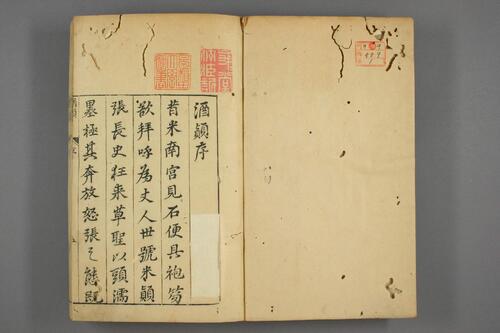 酒顛序
昔米南宫見石便具袍笏
欲拜呼為丈人世號米顛
張長史狂来草聖以頭濡
墨極其奔放怒張之態既